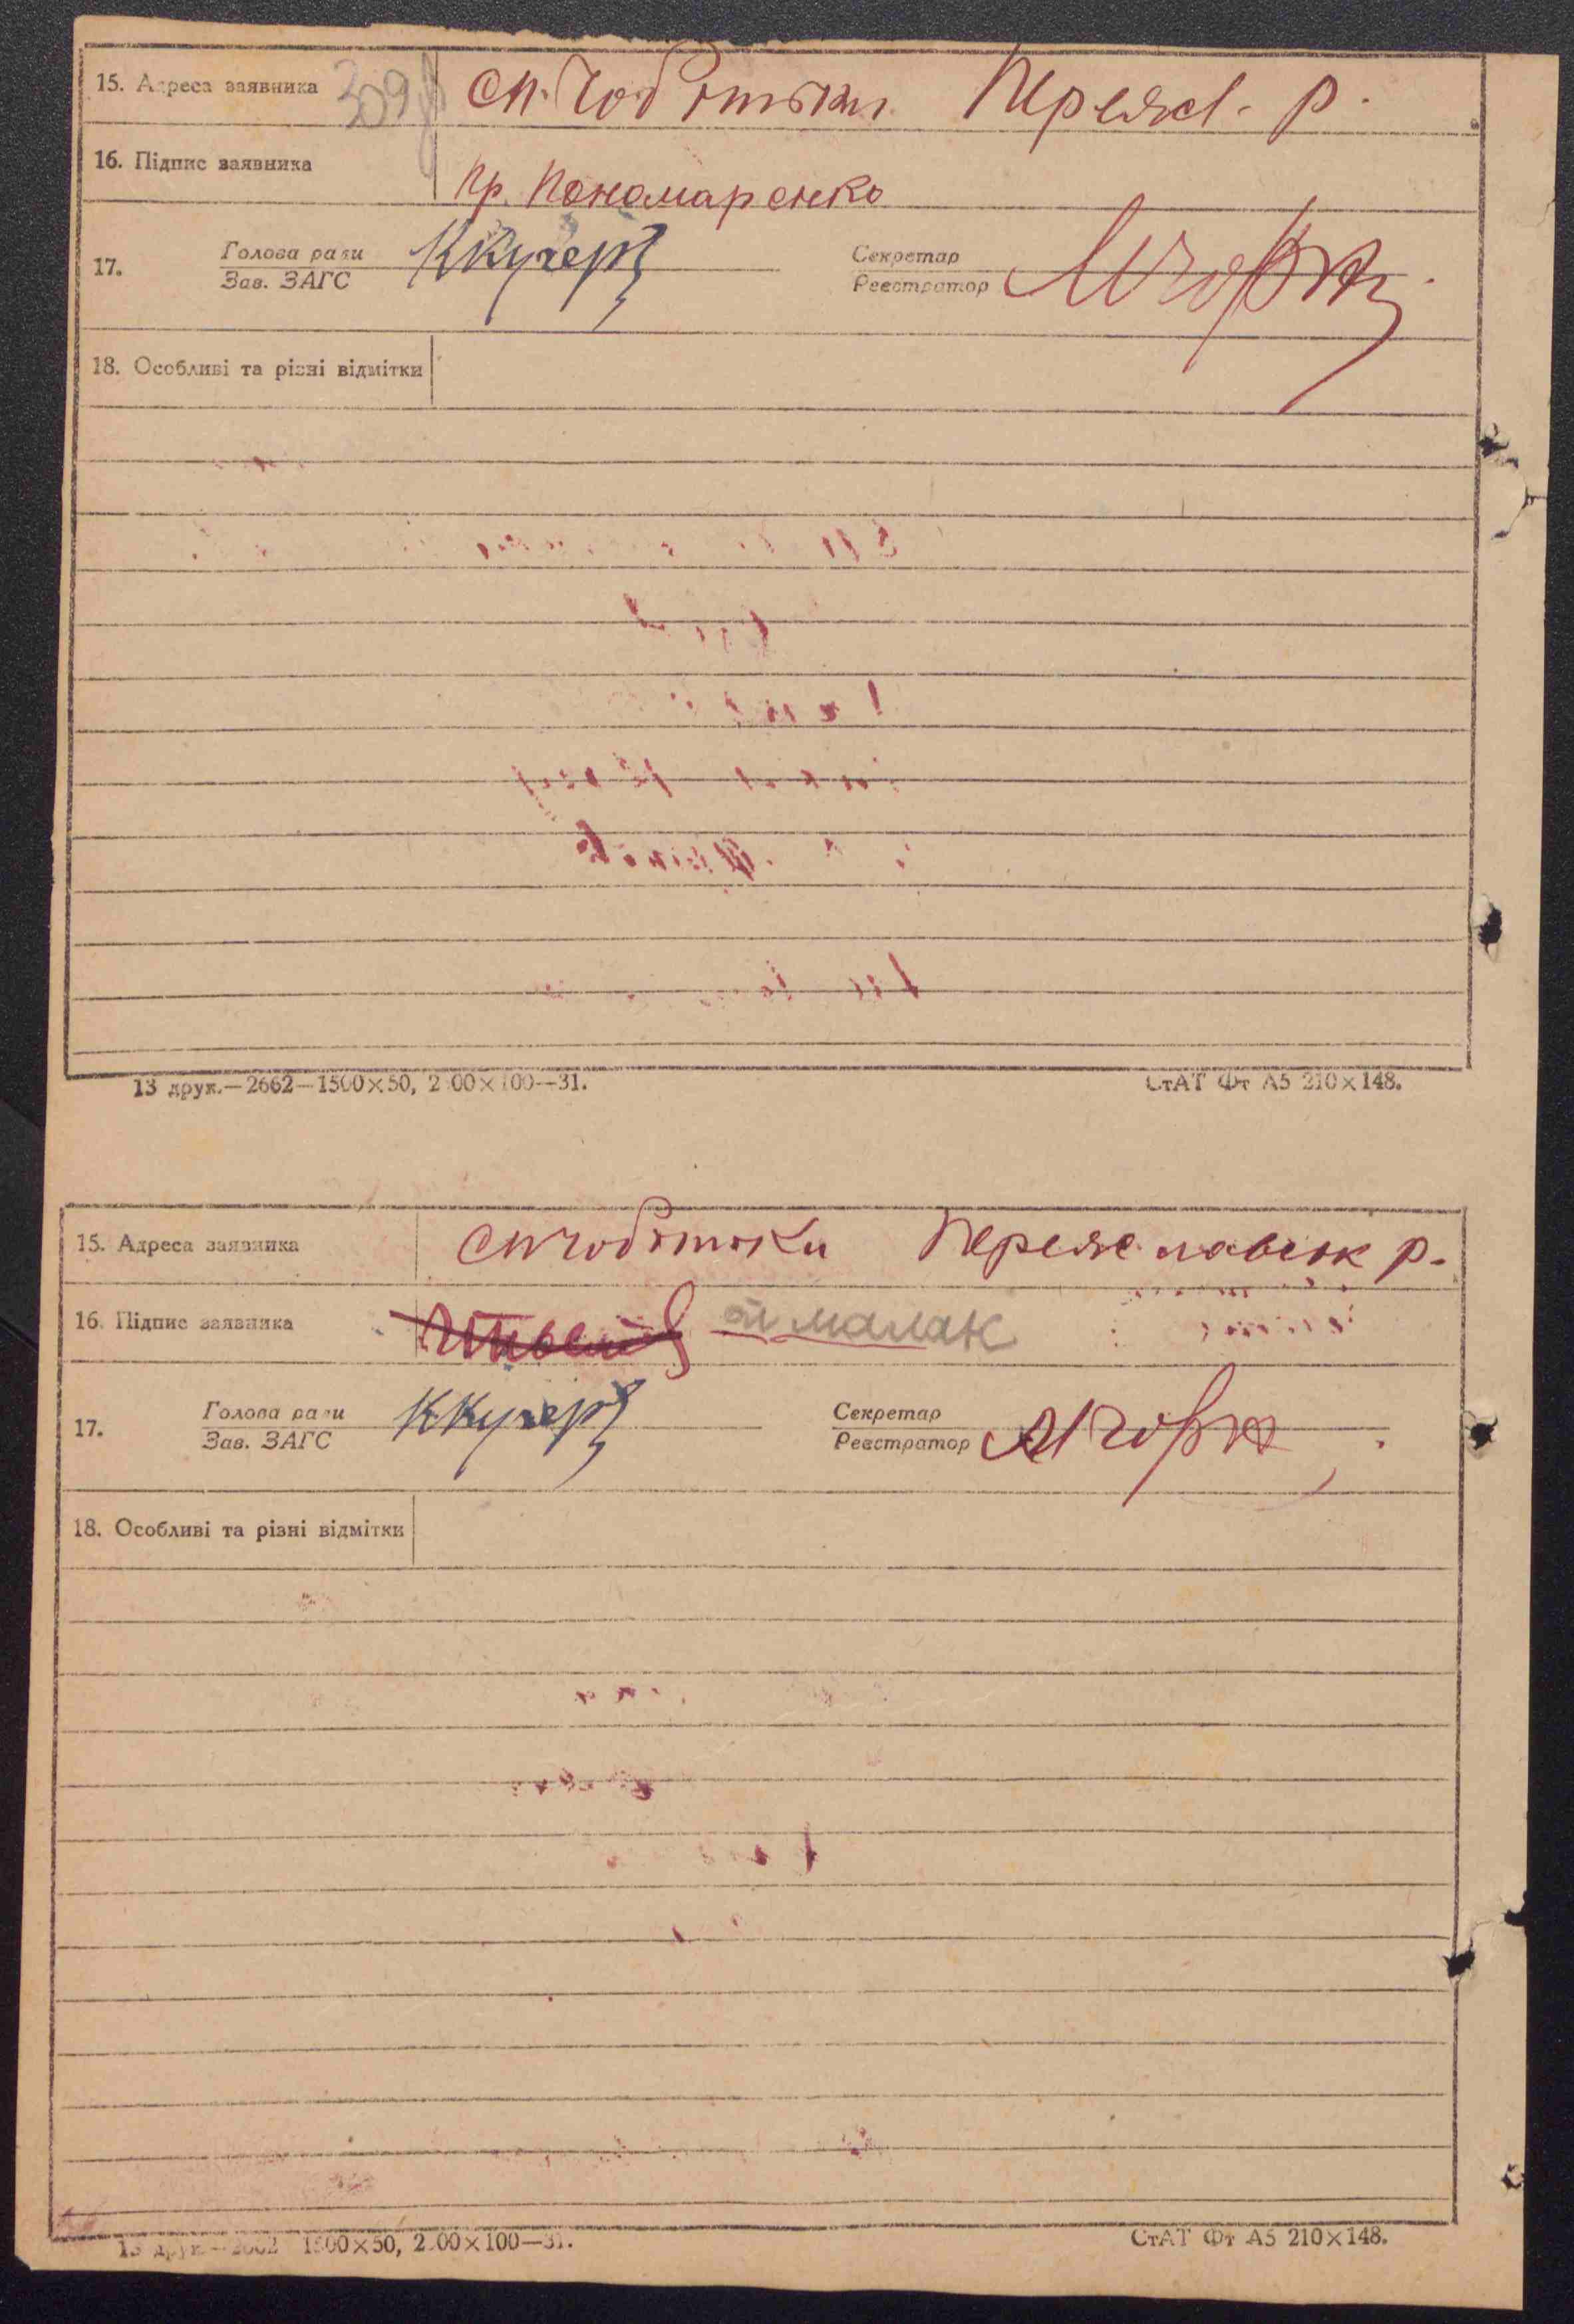 15. Адреса заявника 309 сп. Чобітьки Переясл. р.
16. Підпис заявника
пр. Пономаренко
17. Голова ради ККучер Секретар
Зав. ЗАГС Реєстратор
18. Особливі та різні відмітки
13 друк.—2662—1500×50, 2 00×100—31. СтАТ Фт А5 210×148.
15. Адреса заявника сп Чобітьки Переяславськ р.
16. Підпис заявника малак
17. Голова ради ККучер Секретар
Зав. ЗАГС Реєстратор
18. Особливі та різні відмітки
13 друк.—2662 1500×50, 2 00×100—31. СтАТ Фт А5 210×148.